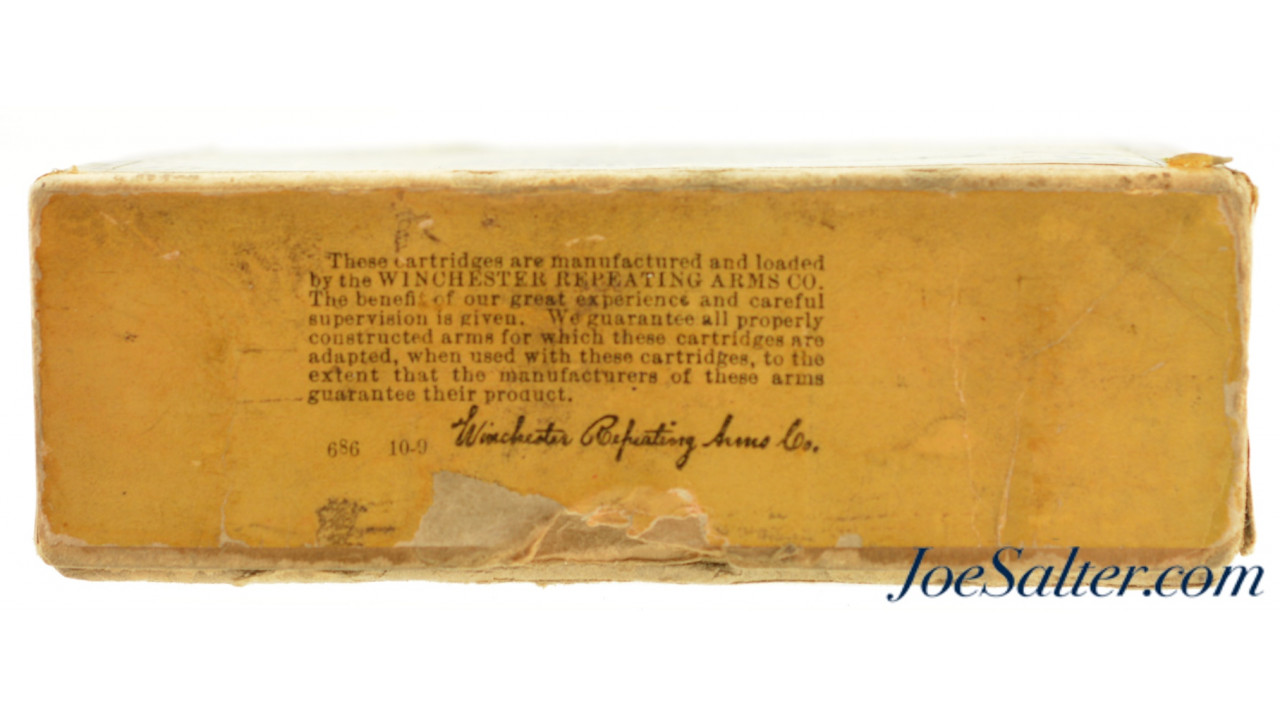 These cartridges are manufactured and loaded
by the WINCHESTER REPEATING ARMS CO.
The benefit of our great experience and careful
supervision is given. We guarantee all properly
constructed arms for which these cartridges are
adapted, when used with these cartridges, to the
extent that the manufacturers of these arms
guarantee their product.
686 10-9 Winchester Repeating Arms Co.
JoeSalter.com